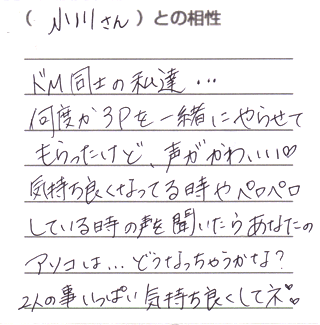 （小川さん）との相性
ドM同士の私達…
何度か3Pを一緒にやらせて
もらったけど、声がかわいい♡
気持ち良くなってる時やペロペロ
している時の声を聞いたらあなたの
アソコは…どうなっちゃうかな?
2人の事いっぱい気持ち良くしてネ♡